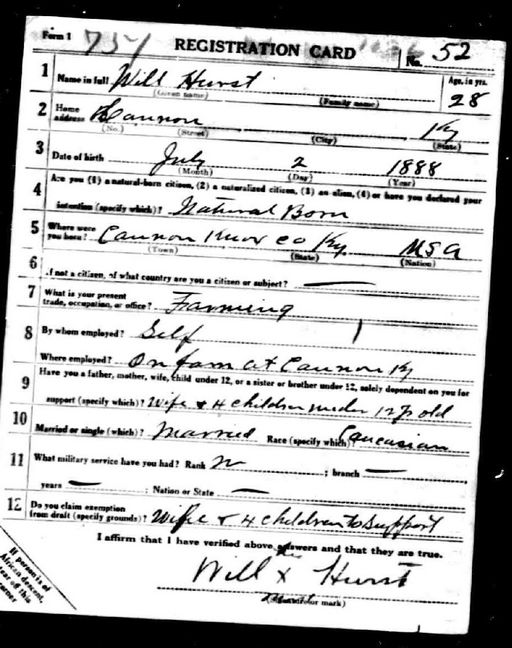 Form 1 757 REGISTRATION CARD No. 52
1 Name in full Will Hurst Age, in yrs. 28
(Given name) (Family name)
2 Home address Cannon Ky
(No.) (Street) (City) (State)
3 Date of birth July 2 1888
(Month) (Day) (Year)
4 Are you (1) a natural-born citizen, (2) a naturalized citizen, (3) an alien, (4) or have you declared your
intention (specify which)? Natural Born
5 Where were you born? Cannon Knox Co Ky USA
(Town) (State) (Nation)
6 If not a citizen, of what country are you a citizen or subject? —
7 What is your present trade, occupation, or office? Farming
8 By whom employed? Self
Where employed? On farm at Cannon Ky
9 Have you a father, mother, wife, child under 12, or a sister or brother under 12, solely dependent on you for
support (specify which)? Wife & 4 children under 12 y old
10 Married or single (which)? Married Race (specify which)? Caucasian
11 What military service have you had? Rank ; branch —
years — ; Nation or State —
12 Do you claim exemption from draft (specify grounds)? Wife & 4 children to support
I affirm that I have verified above answers and that they are true.
his
Will x Hurst
mark
(Signature or mark)
If person is of
African descent,
tear off this
corner